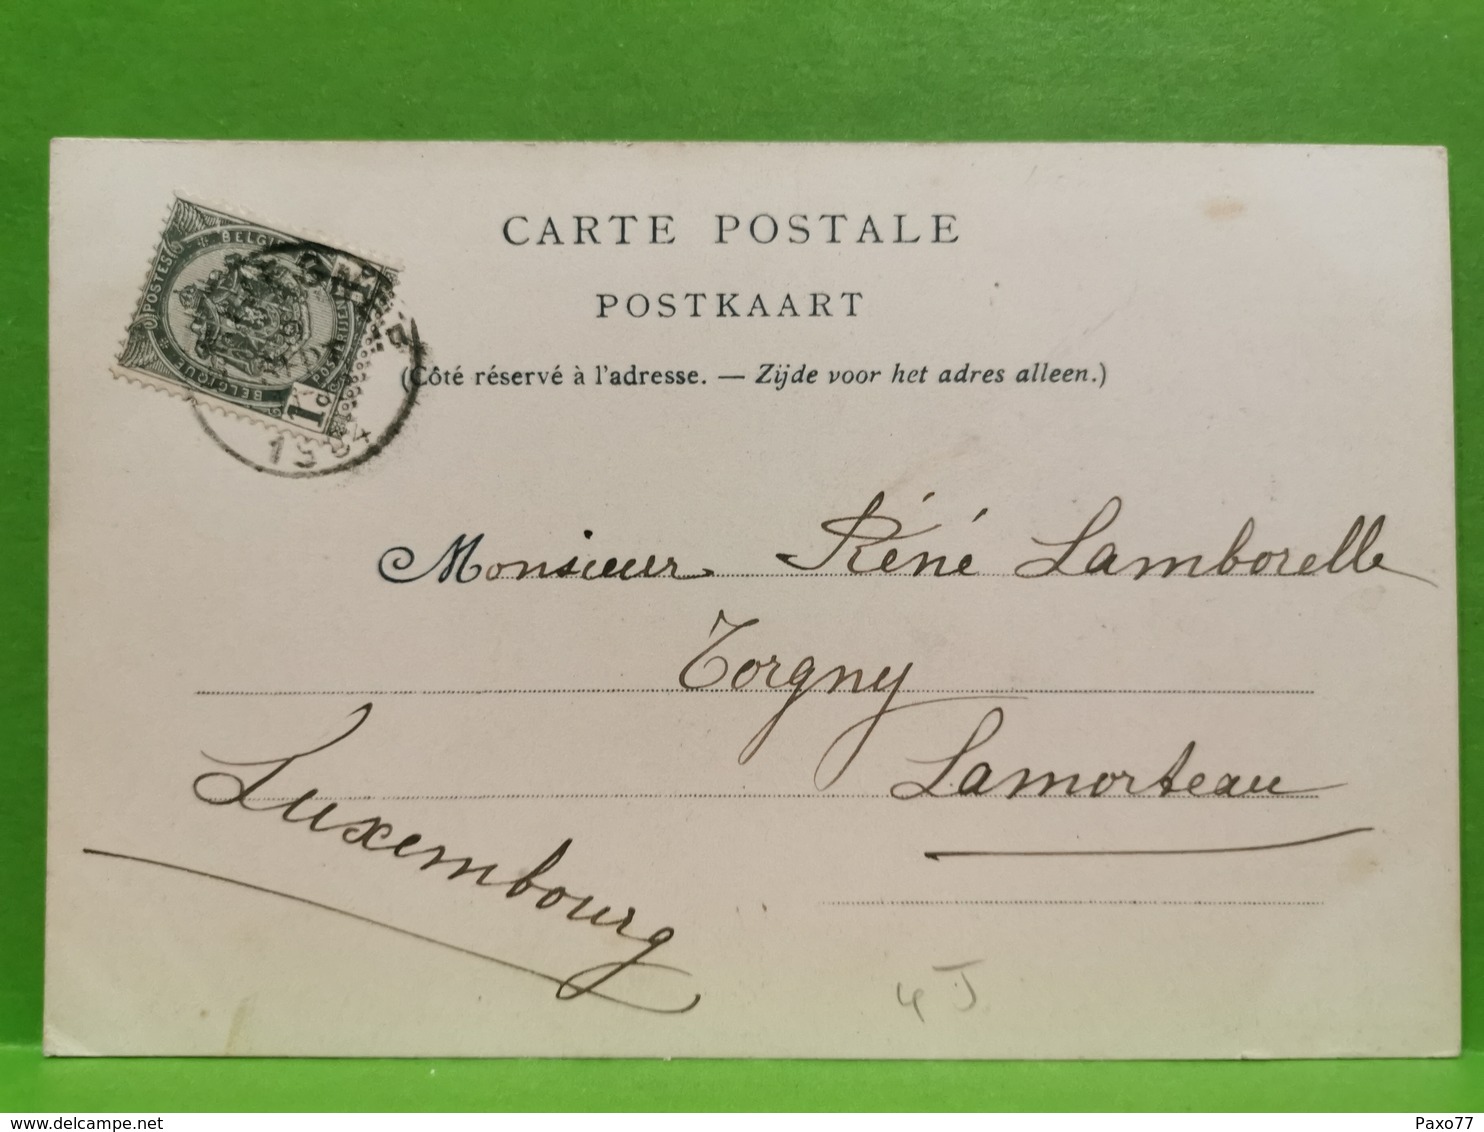 CARTE POSTALE
POSTKAART
(Côté réservé à l'adresse. — Zijde voor het adres alleen.)
POSTES
BELGIQUE
1
Monsieur Réné Lamborelle
Torgny
Lamorteau
Luxembourg
4 J
www.delcampe.net
Paxo77